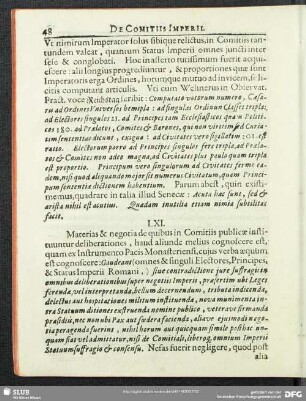 48 DE COMITIIS IMPERII.
Vt nimirum Imperator solus sibique relictus, in Comitiis tan-
tundem valeat, quantum Status Imperii omnes juncti inter
sese & conglobati. Hoc in asserto tutissimum fuerit acqui-
escere: alii longius progrediuntur, & proportiones quæ sunt
Imperatoris erga Ordines, horumque mutuo ad invicem, sol-
citis computant articulis. Vti cum Wehnerus in Observat.
Pract. voce Reichstag scribit: Computato votorum numero, Cæsa-
ris ad Ordines Universos bempla: ad singulos Ordinum Classes tripla,
ad Electores singulos 21. ad Principes tam Ecclesiasticos quam Politi-
cos 180. ad Prælatos, Comites & Barones, qui non viritim sed Curia-
tim sententias dicunt, exigua: ad Civitates vero sigillatim 101. est
ratio. Electorum porro ad Principes singulos fere tripla, ad Præla-
tos & Comites non adeo magna, ad Civitates plus paulo quam tripla
est proportio. Principum vero singulorum ad Civitates ferme ea-
dem, nisi quod aliquando major sit numerus Civitatum, quam Princi-
pum sententia dictionem habentium. Parum abest, quin existi-
memus, quadrare in talia illud Senecæ: Acuta hæc sunt, sed &
arista nihil est acutius. Quædam inutilia etiam nimia subtilitas
facit.
LXI.
Materias & negotia de quibus in Comitiis publicæ insti-
tuuntur deliberationes, haud aliunde melius cognoscere est,
quam ex Instrumento Pacis Monasteriensi, cujus verba æquum
est cognoscere: Gaudeant (omnes & singuli Electores, Principes,
& Status Imperii Romani,) sine contradictione jure suffragii in
omnibus deliberationibus super negotiis Imperii, præsertim ubi Leges
ferendæ, vel interpretandæ, bellum decernendum, tributa indicenda,
delectus aut hospitationes militum instituendæ, nova munimenta in-
tra Statuum ditiones exstruenda nomine publico, veterave firmanda
præsidiis, nec non ubi Pax aut fœdera facienda, aliave ejusmodi ne-
gotia peragenda fuerint, nihil horum aut quicquam simile posthac un-
quam fiat vel admittatur, nisi de Comitiali, liberaq; omnium Imperii
Statuum suffragio & consensu. Nefas fuerit negligere, quod post
alia
SLUB
DFG